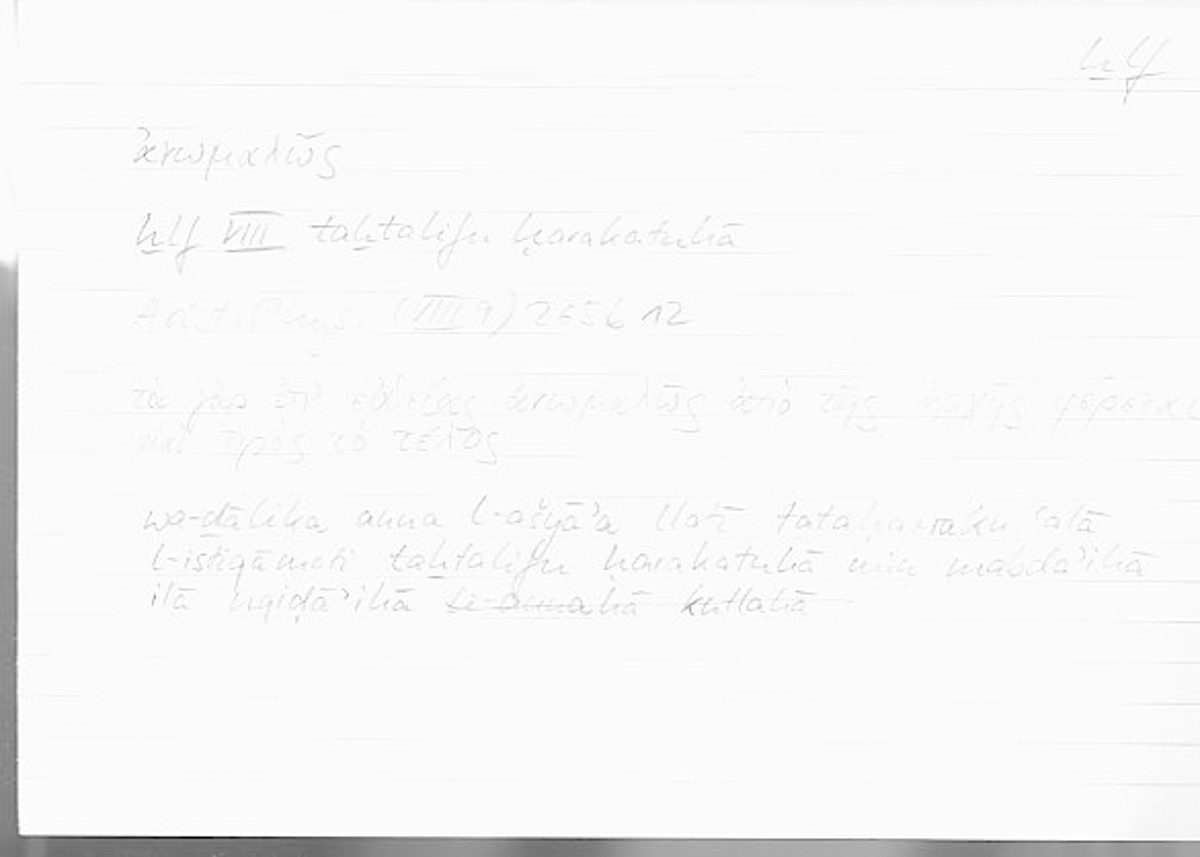 ḫlf
ἀνωμαλῶς
ḫlf VIII taḫtalifu ḥarakatuhā
Arist. Phys. (VIII 9) 265b 12
τὰ γὰρ ἐπ' εὐθείας ἀνωμαλῶς ἀπὸ τῆς ἀρχῆς φέρεται
καὶ πρὸς τὸ τέλος
wa-ḏālika anna l-ašyāʾa llatī tataḥarraku ʿalā
l-istiqāmati taḫtalifu ḥarakatuhā min mabdaʾihā
ilā nqiḍāʾihā kullahā